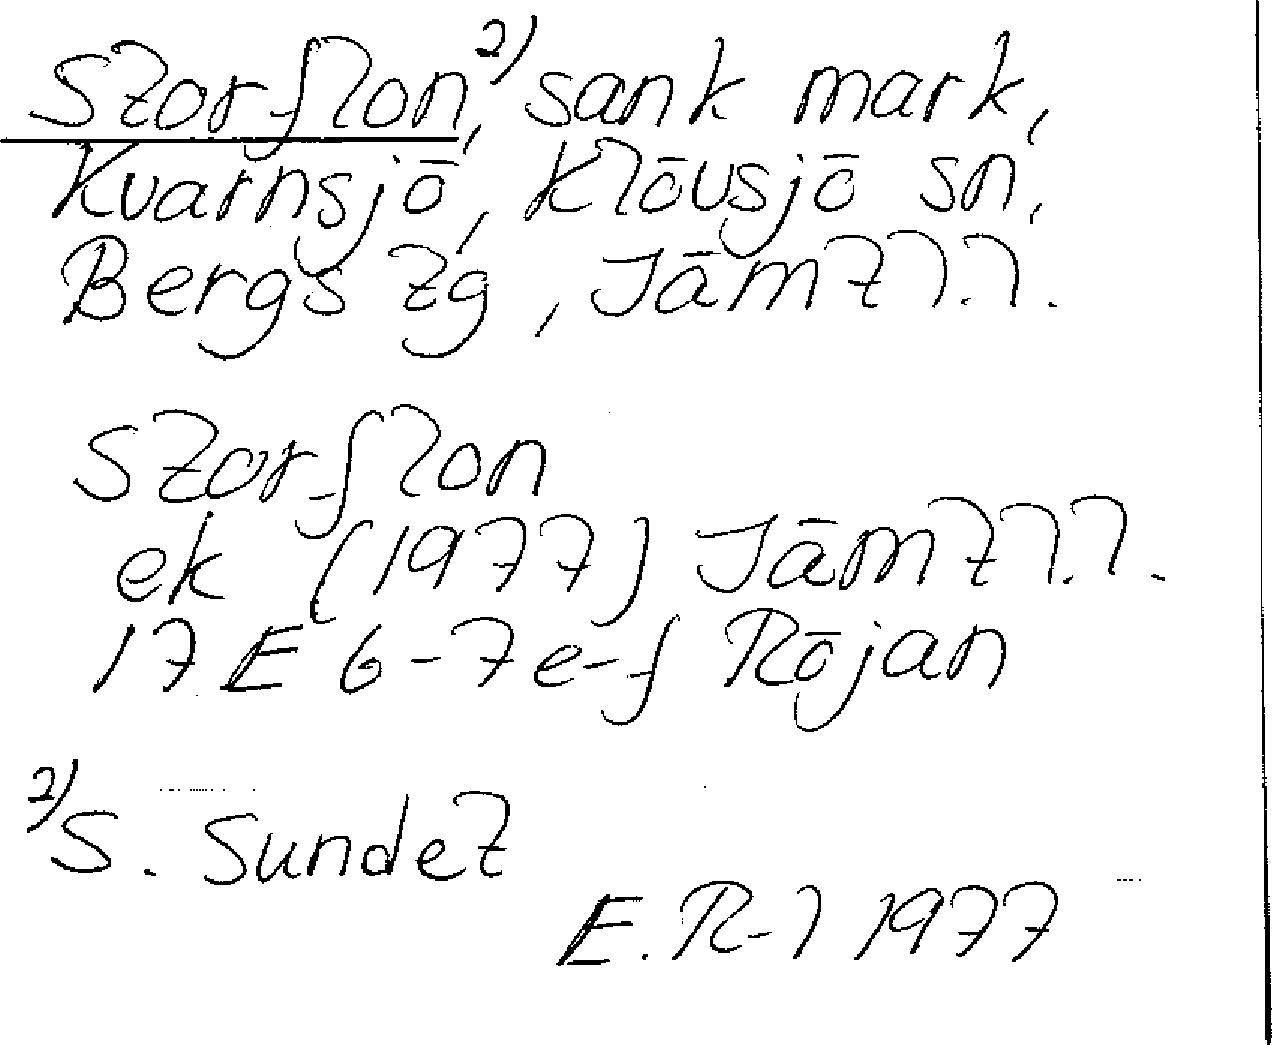 Storflon,2) sank mark,
Kvarnsjö, Klövsjö sn,
Bergs tg, Jämtl.l.
Storflon
ek (1977) Jämtl.l.
17 E 6-7 e-f Röjan
2) S. Sundet
E.R-l 1977